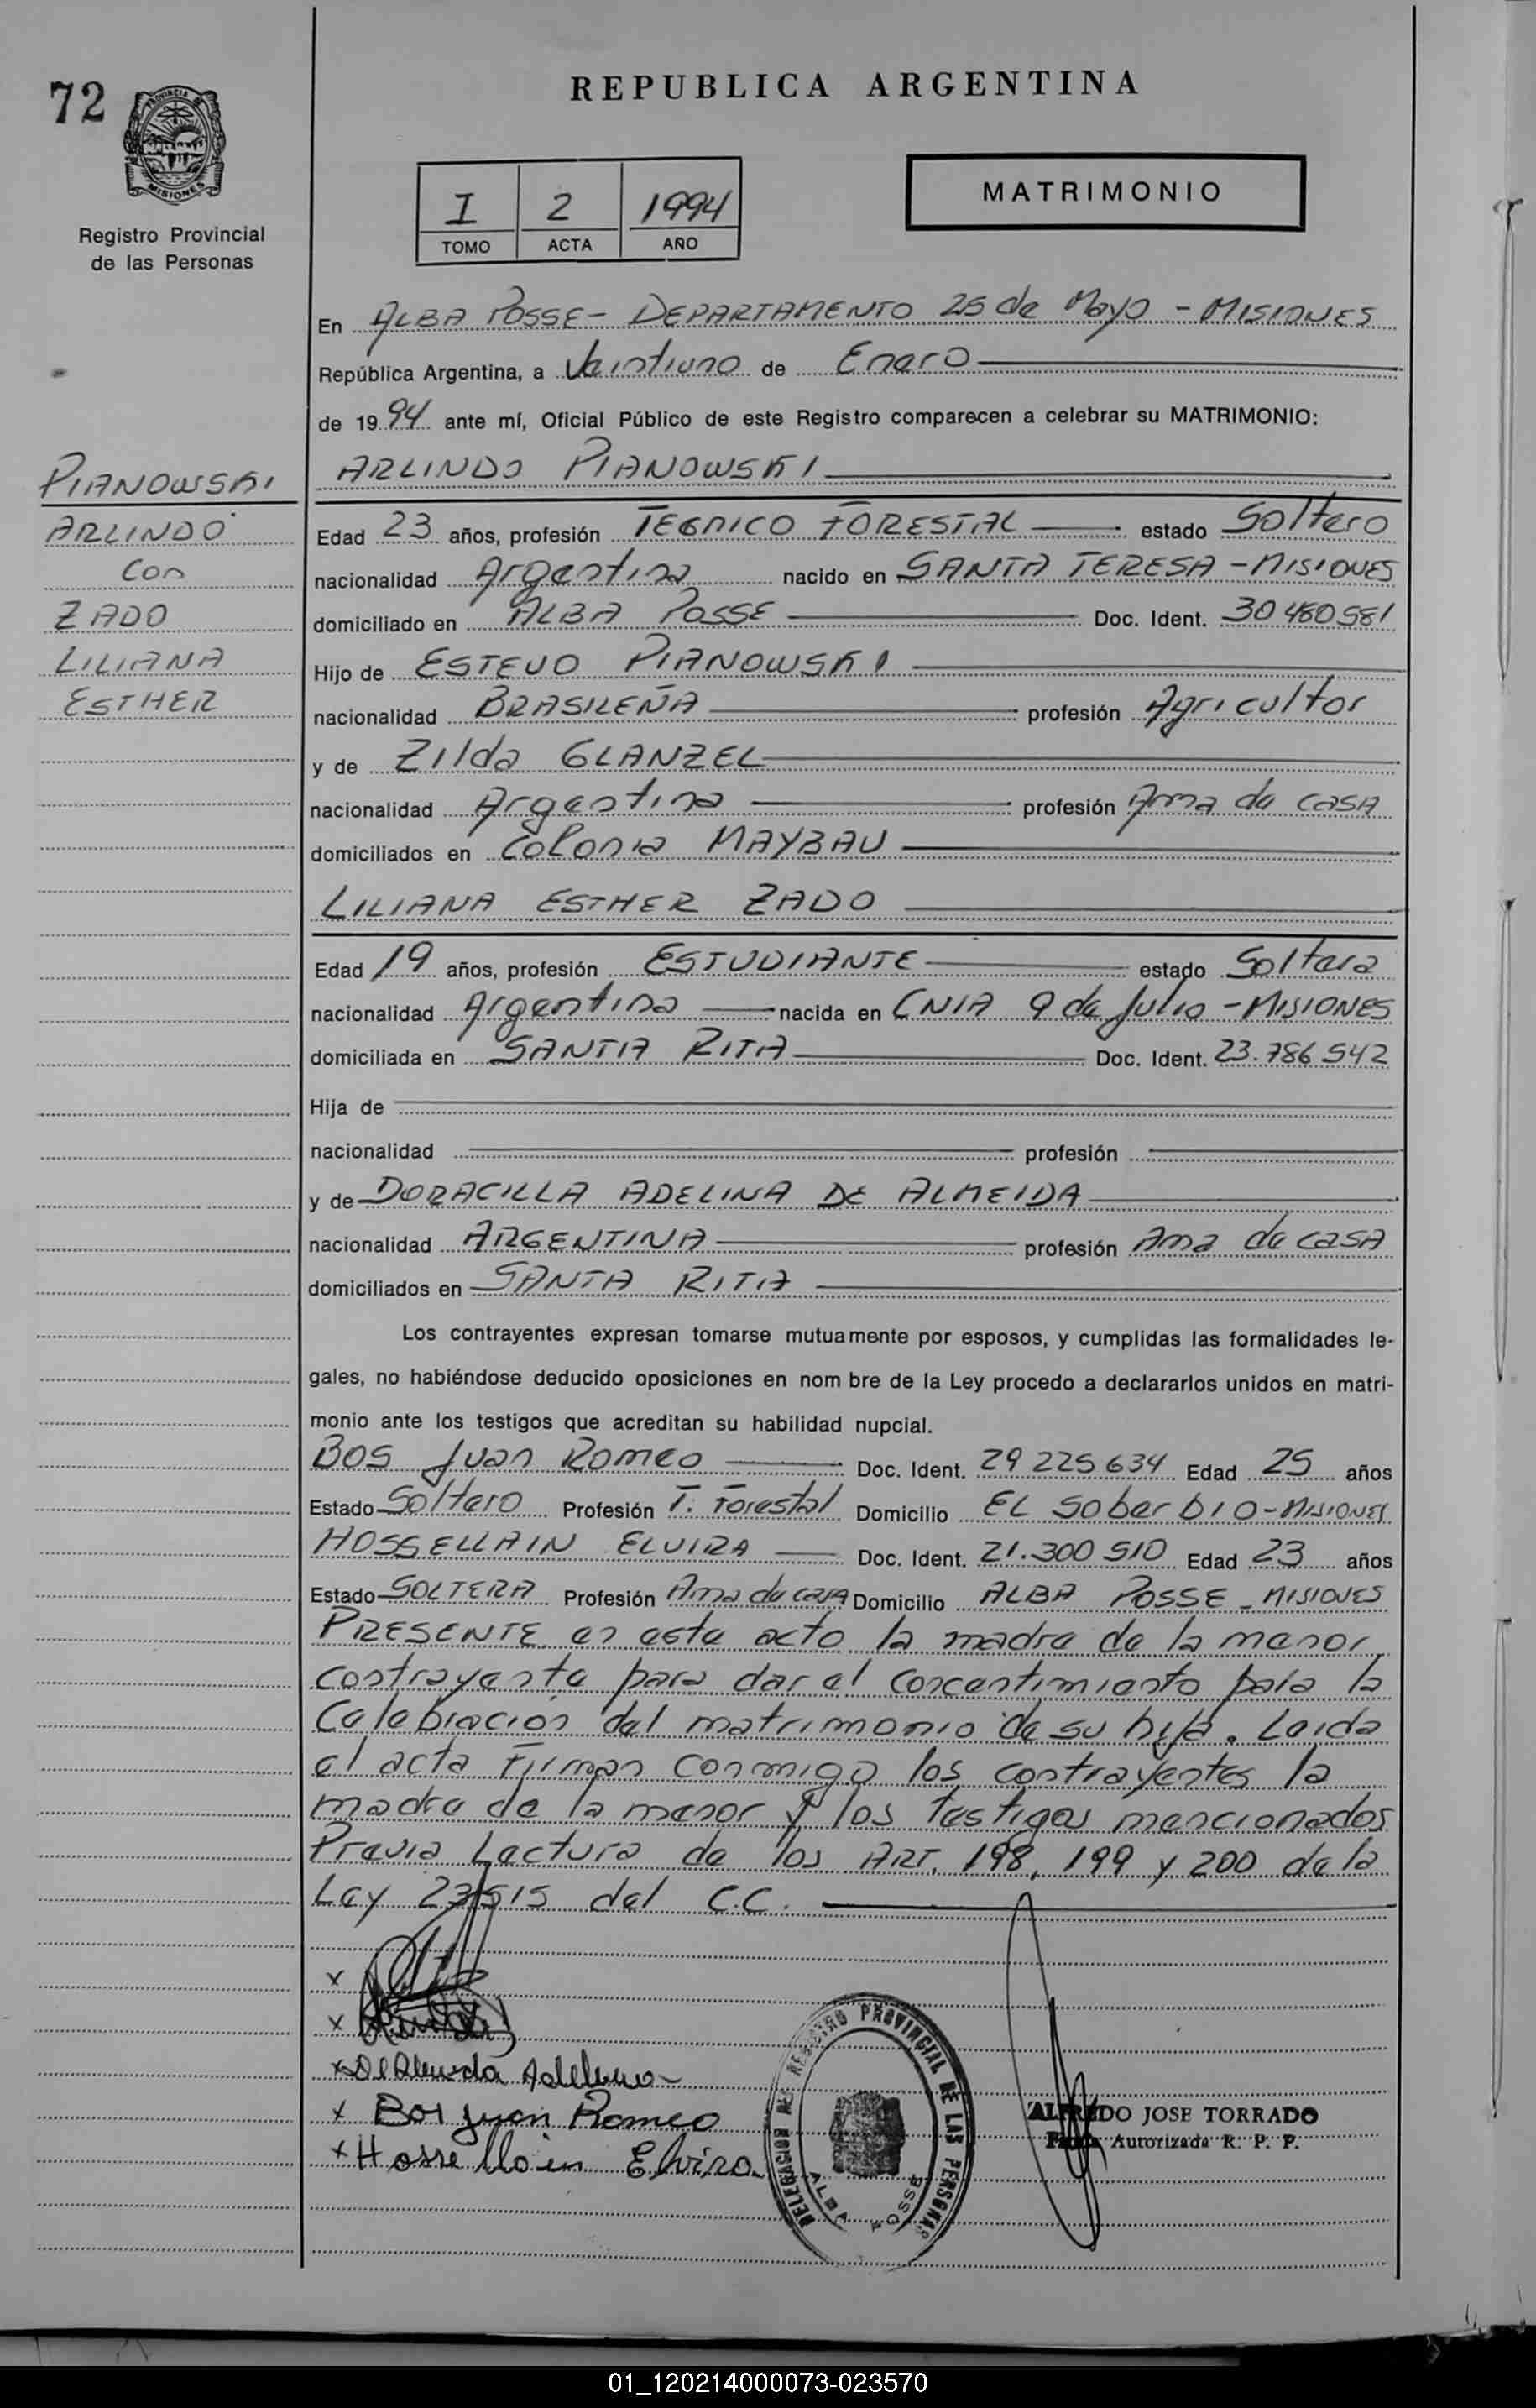 72
PROVINCIA DE
MISIONES
Registro Provincial
de las Personas
REPUBLICA ARGENTINA
I 2 1994
TOMO ACTA AÑO
MATRIMONIO
En ALBA POSSE - DEPARTAMENTO 25 de Mayo - MISIONES
República Argentina, a Veintiuno de Enero
de 1994 ante mí, Oficial Público de este Registro comparecen a celebrar su MATRIMONIO:
PIANOWSKI
ARLINDO
con
ZADO
LILIANA
ESTHER
ARLINDO PIANOWSKI
Edad 23 años, profesión TECNICO FORESTAL estado Soltero
nacionalidad Argentina nacido en SANTA TERESA - MISIONES
domiciliado en ALBA POSSE Doc. Ident. 30480581
Hijo de ESTEVO PIANOWSKI
nacionalidad BRASILEÑA profesión Agricultor
y de Zilda GLANZEL
nacionalidad Argentina profesión Ama de casa
domiciliados en Colonia MAYBAU
LILIANA ESTHER ZADO
Edad 19 años, profesión ESTUDIANTE estado Soltera
nacionalidad Argentina nacida en CNIA 9 de Julio - MISIONES
domiciliada en SANTA RITA Doc. Ident. 23.786542
Hija de
nacionalidad profesión
y de DORACILLA ADELINA DE ALMEIDA
nacionalidad ARGENTINA profesión Ama de casa
domiciliados en SANTA RITA
Los contrayentes expresan tomarse mutuamente por esposos, y cumplidas las formalidades le-
gales, no habiéndose deducido oposiciones en nom bre de la Ley procedo a declararlos unidos en matri-
monio ante los testigos que acreditan su habilidad nupcial.
BOS Juan Romeo Doc. Ident. 29225634 Edad 25 años
Estado Soltero Profesión T. Forestal Domicilio EL Soberbio - MISIONES
HOSSELLAIN ELVIRA Doc. Ident. 21.300510 Edad 23 años
Estado SOLTERA Profesión Ama de casa Domicilio ALBA POSSE - MISIONES
PRESENTE en este acto la madre de la menor
contrayente para dar el concentimiento para la
Celebracion del matrimonio de su hija. Leida
el acta Firman conmigo los contrayentes la
madre de la menor y los testigos mencionados
Previa Lectura de los ART. 198, 199 y 200 de la
Ley 23515 del C.C.
x
x
x De Almeida Adelina
x Bos Juan Romeo
x Hossellain Elvira
DELEGACION DEL REGISTRO PROVINCIAL DE LAS PERSONAS
ALBA POSSE
ALFREDO JOSE TORRADO
Firma Autorizada R. P. P.
01_120214000073-023570